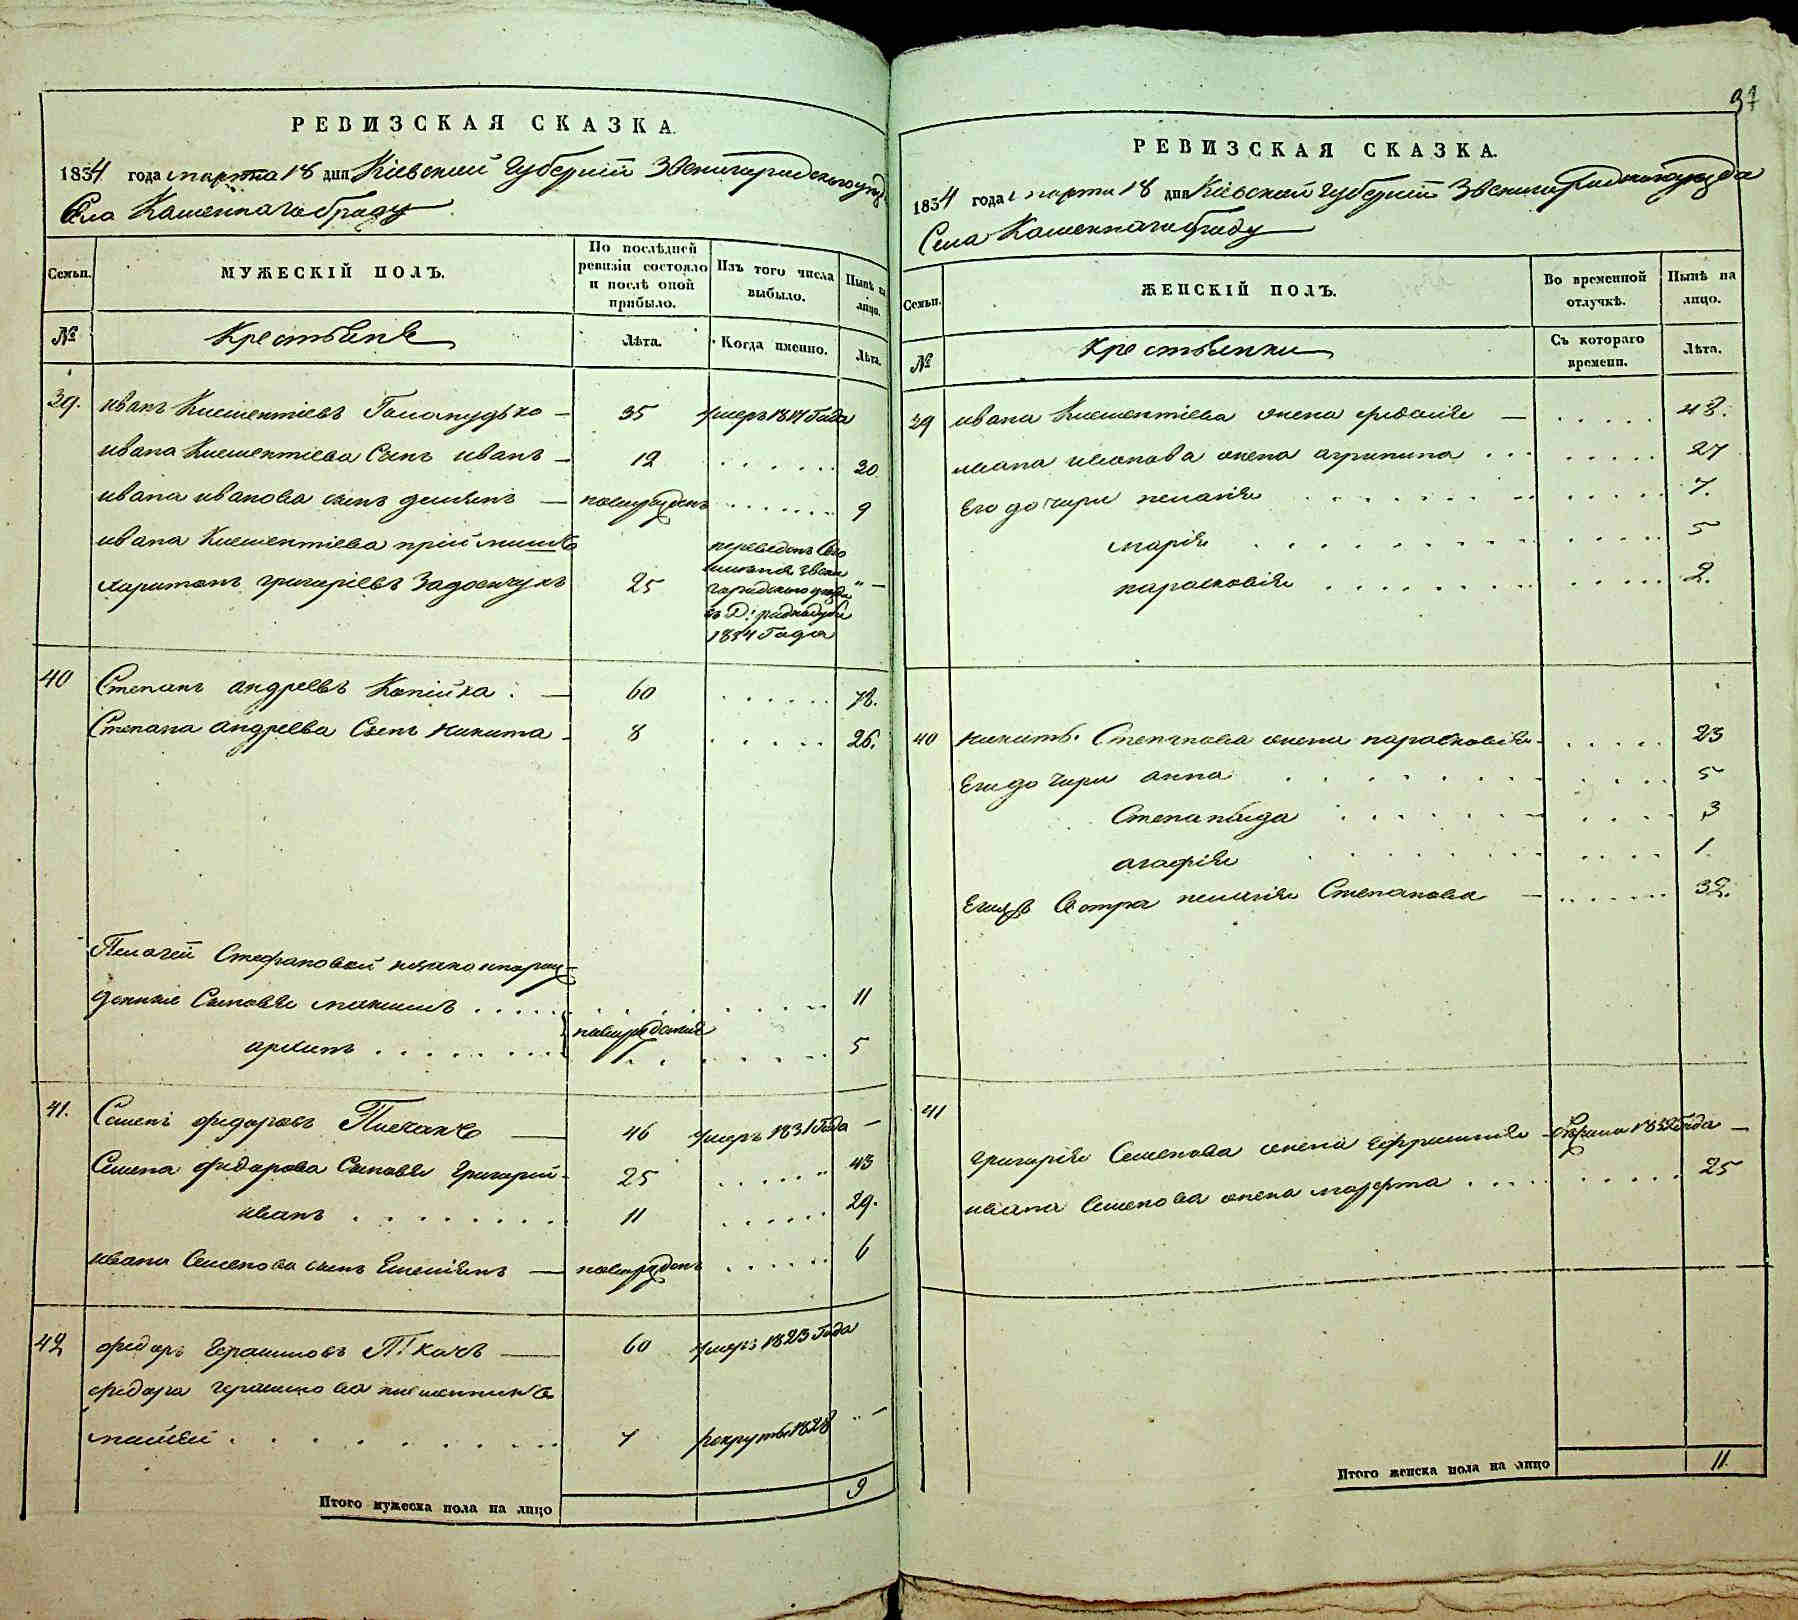 РЕВИЗСКАЯ СКАЗКА.
1834 года марта 18 дня Кіевской Губерніи Звенигородского уезда
Села Каменнагоброду
Семьи.
МУЖЕСКІЙ ПОЛЪ.
По послѣдней ревизіи состояло и послѣ оной прибыло.
Изъ того числа выбыло.
Нынѣ на лицо.
№
Крестьяне
Лѣта.
Когда именно.
Лѣта.
39. иванъ Климентіевъ — 35 умеръ 18 Года
ивана Климентіева Сынъ иванъ — 12 30
ивана иванова сынъ демянъ — новорожденъ 9
ивана Климентіева пріймишъ
харитонъ григоріевъ 25 переведенъ 1834 Года " —
40 Степанъ андреевъ Копійка . — 60 78.
Степана андреева Сынъ никита 8 26.
Пелагеи Стефановой незаконнорож-
денные Сыновья максимъ 11
архипъ новорожденные 5
41. Семенъ федоровъ — 46 умеръ 1831 Года —
Семена федорова Сыновья григорій 25 " 43
иванъ 11 29.
ивана Семенова сынъ Емелянъ — новорожденъ 6
42 федоръ герасимовъ Ткачъ — 60 умеръ 1823 Года
федора герасимова племянникъ
7 рекруты 1828 " —
Итого мужеска пола на лицо 9
37
РЕВИЗСКАЯ СКАЗКА.
1834 года марта 18 дня Кіевской Губерніи Звенигородского уезда
Села Каменнагоброду
Семьи.
ЖЕНСКІЙ ПОЛЪ.
Во временной отлучкѣ.
Нынѣ на лицо.
№
Крестьянки
Съ котораго времени.
Лѣта.
39 ивана Климентіева жена — 48.
ивана иванова жена агрипина 27
Его дочери пелагія 7.
марія 5
парасковія 2.
40 никиты Степанова жена парасковія 23
Его дочери анна 5
Степанида 3
агафія 1.
Сестра пелагія Степанова — 32.
41
григорія Семенова жена ефросинія 1832 Года —
ивана Семенова жена марфта 25
Итого женска пола на лицо 11